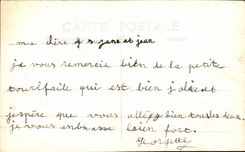 CARTE POSTALE
ma chère Suzane et jean
je vous remercie bien de la petite
qui est bien joli et
j'espère que vous allez bien tous les deux
je vous embrasse bien fort.
Georgette